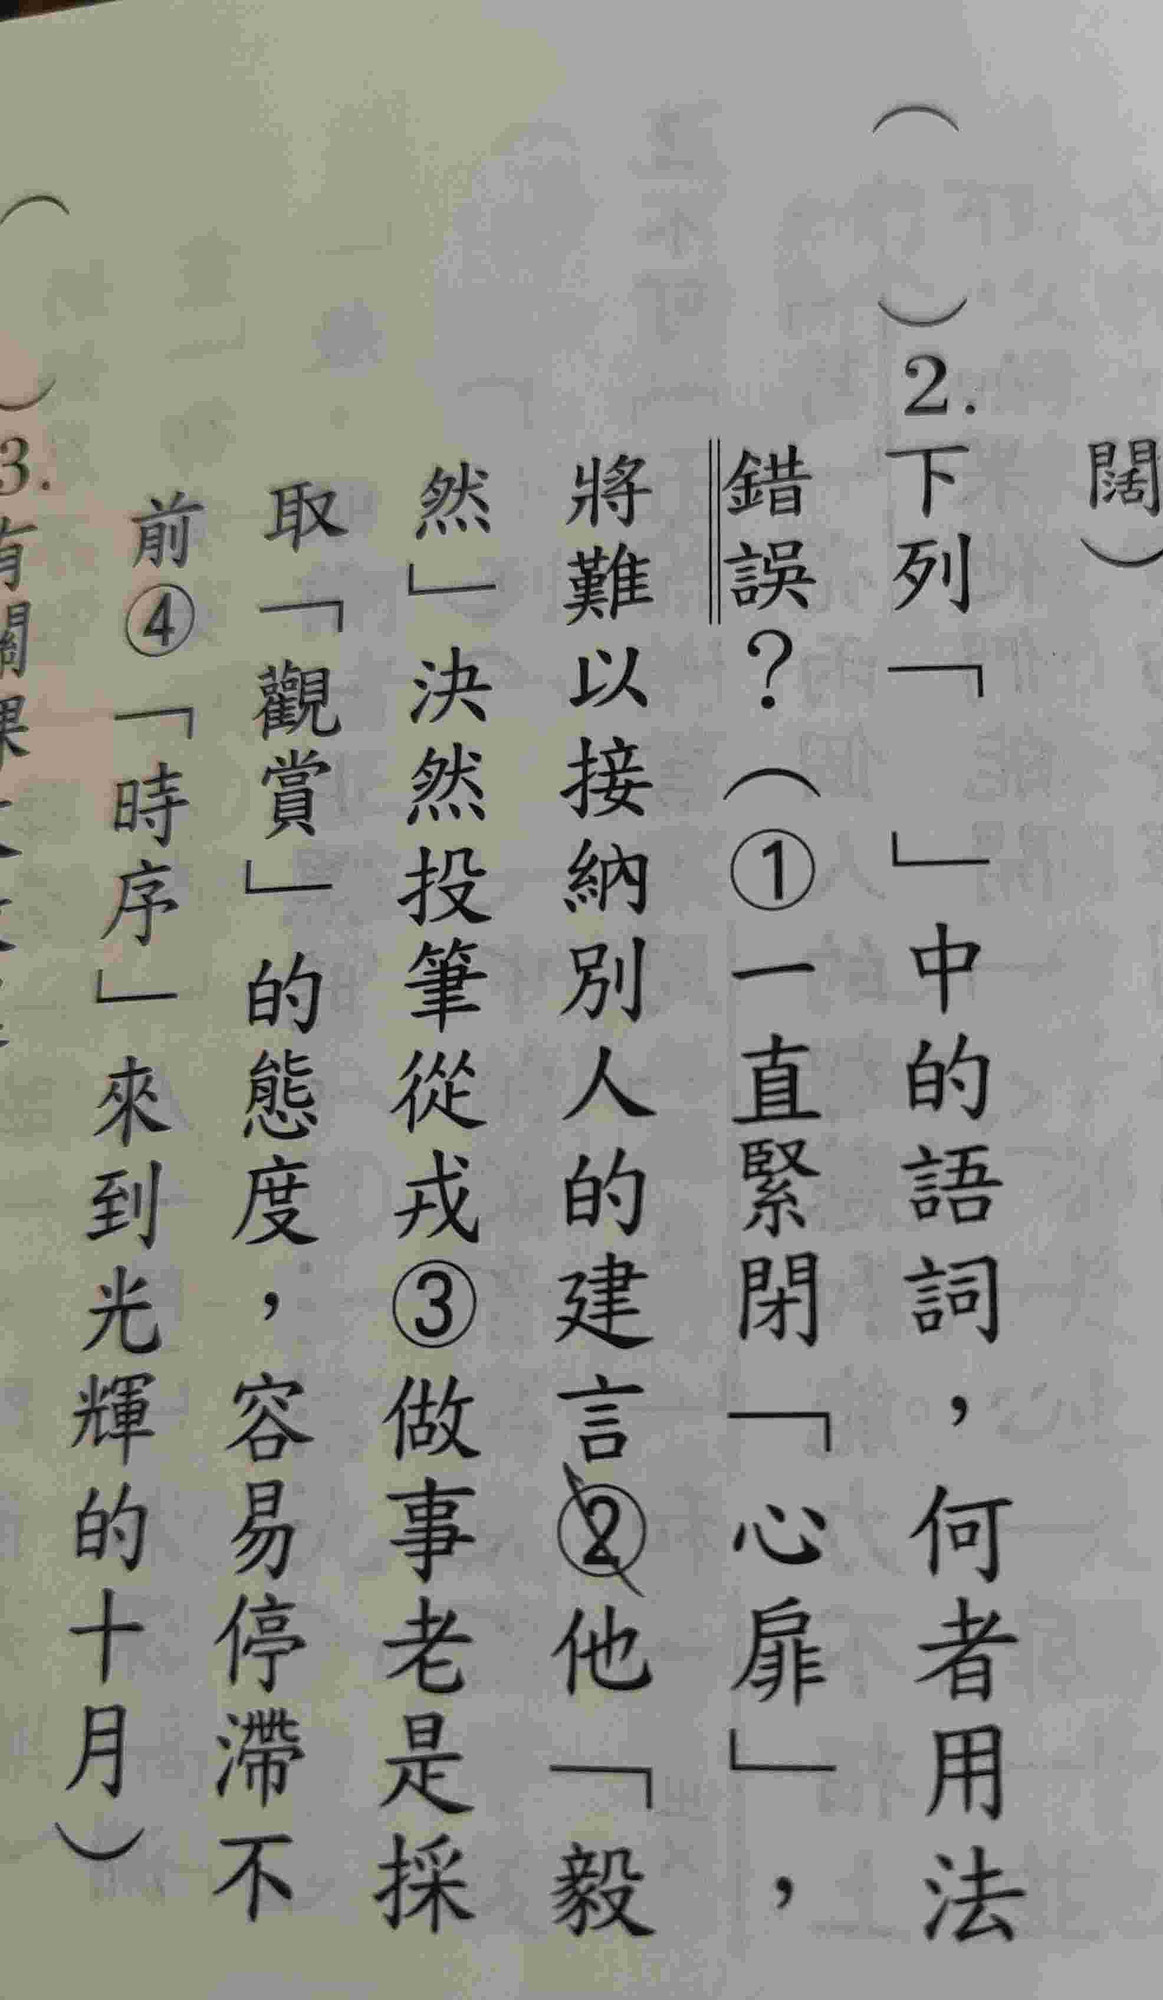 闊）
（　　）2.下列「　」中的語詞，何者用法
錯誤？（①一直緊閉「心扉」，
將難以接納別人的建言②他「毅
然」決然投筆從戎③做事老是採
取「觀賞」的態度，容易停滯不
前④「時序」來到光輝的十月）
（　　）3.有關課